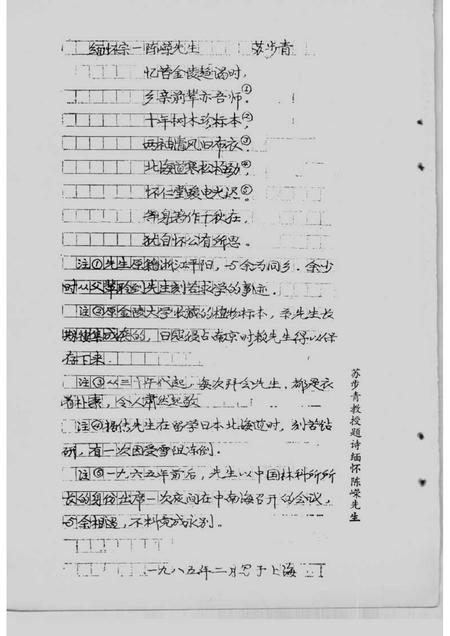 缅怀宗一陈嵘先生　苏步青
忆昔金陵趋谒时，
乡亲前辈亦吾师①。
十年树木珍标本②，
两袖清风旧布衣③。
北海道寒松柏劲④，
怀仁堂暖电光迟⑤。
等身著作千秋在，
犹自怀公有所思。
注①先生原籍浙江平阳，与余为同乡。余少
时从父辈聆到先生刻苦求学的事迹。
注②原金陵大学收藏的植物标本，系先生长
期搜集成套的，日寇侵占南京时赖先生得以保
存下来。
注③从三十年代起，每次拜会先生，都是衣
着朴素，令人肃然起敬
注④据传先生在留学日本北海道时，刻苦钻
研，有一次因受雪阻冻倒。
注⑤一九六五年前后，先生以中国林科所所
长的身份出席一次夜间在中南海召开的会议，
与余相遇，不料竟成永别。
一九八五年二月 于上海
苏步青教授题诗缅怀陈嵘先生